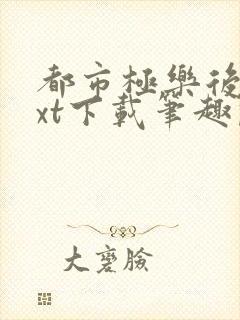 都市極樂後
xt下載筆趣
大寬臉